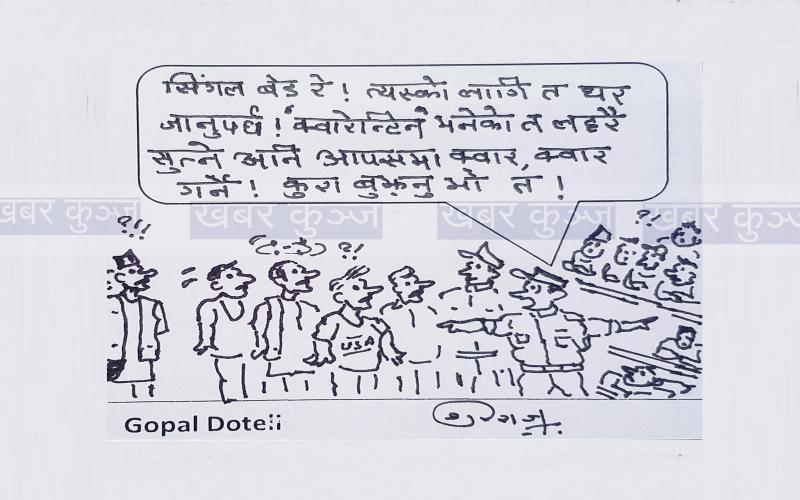 सिंगल बेड रे! त्यस्को लागि त घर
जानुपर्छ! "क्वारेन्टिन" भनेको त लहरै
सुत्ने अनि आपसमा क्वार, क्वार
गर्ने! कुरा बुझ्नु भो त!
खबर कुञ्ज खबर कुञ्ज खबर कुञ्ज खबर कुञ्ज
?!! ?! ?!
USA
Gopal